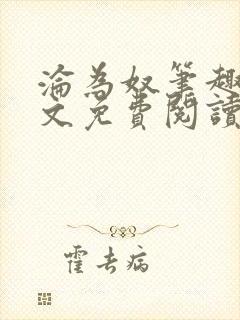 淪為奴筆趣
文免費閱讀
霍去病